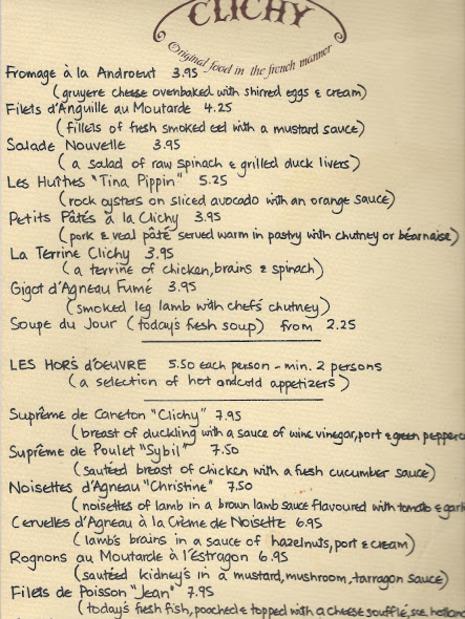 CLICHY
Original food in the french manner
Fromage à la Androeut 3.95
(gruyere cheese ovenbaked with shirred eggs & cream)
Filets d'Anguille au Moutarde 4.25
(fillets of fresh smoked eel with a mustard sauce)
Salade Nouvelle 3.95
(a salad of raw spinach & grilled duck livers)
Les Huîtres "Tina Pippin" 5.25
(rock oysters on sliced avocado with an orange sauce)
Petits Pâtés à la Clichy 3.95
(pork & veal pâté served warm in pastry with chutney or béarnaise)
La Terrine Clichy 3.95
(a terrine of chicken, brains & spinach)
Gigot d'Agneau Fumé 3.95
(smoked leg lamb with chefs chutney)
Soupe du Jour (today's fresh soup) from 2.25
LES HORS D'OEUVRE 5.50 each person - min. 2 persons
(a selection of hot and cold appetizers)
Suprême de Caneton "Clichy" 7.95
(breast of duckling with a sauce of wine vinegar, port & green pepperc
Suprême de Poulet "Sybil" 7.50
(sautéed breast of chicken with a fresh cucumber sauce)
Noisettes d'Agneau "Christine" 7.50
(noisettes of lamb in a brown lamb sauce flavoured with tomato & garl
Cervelles d'Agneau à la Crème de Noisette 6.95
(lamb's brains in a sauce of hazelnuts, port & cream)
Rognons au Moutarde à l'éstragon 6.95
(sautéed kidney's in a mustard, mushroom, tarragon sauce)
Filets de Poisson "Jean" 7.95
(today's fresh fish, poached & topped with a cheese soufflé, sce. hollan